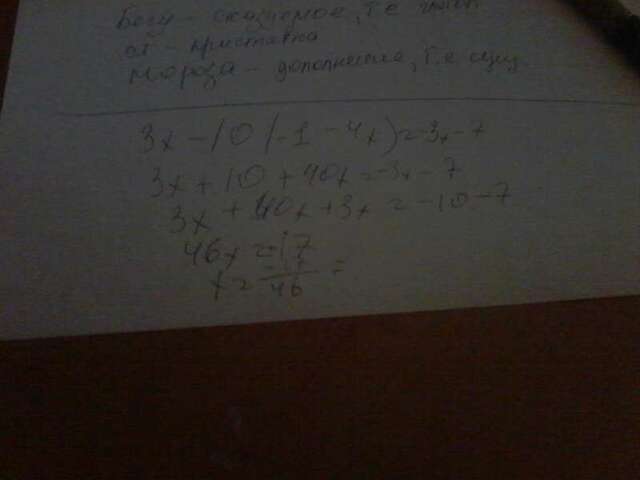 Бегу - сказуемое, т.е глагол
от - приставка
Мороза - дополнение, т.е сущ
3x - 10(-1 - 4x) = -3x - 7
3x + 10 + 40x = -3x - 7
3x + 40x + 3x = -10 - 7
46x = -17
x = -17/46 =